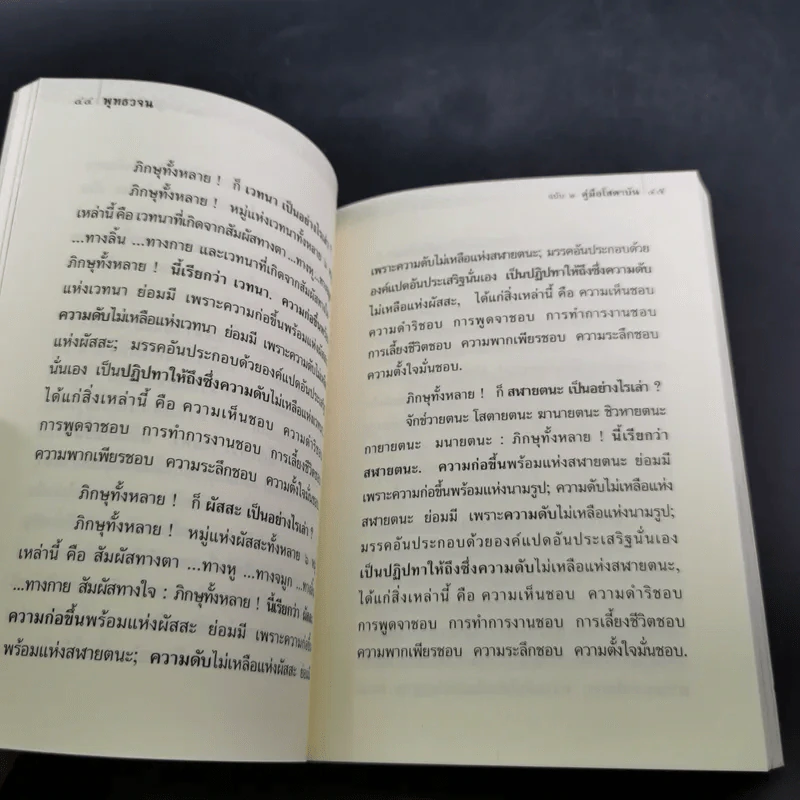 ๔๔ พุทธวจน
ภิกษุทั้งหลาย ! ก็ เวทนา เป็นอย่างไรเล่า ?
ภิกษุทั้งหลาย ! หมู่แห่งเวทนาทั้งหลาย ๖
เหล่านี้ คือ เวทนาที่เกิดจากสัมผัสทางตา ...ทางหู
...ทางลิ้น ...ทางกาย และเวทนาที่เกิดจากสัมผัสทาง
ภิกษุทั้งหลาย ! นี้เรียกว่า เวทนา. ความก่อขึ้นพร้อม
แห่งเวทนา ย่อมมี เพราะความก่อขึ้นพร้อมแห่งผัสสะ
ความดับไม่เหลือแห่งเวทนา ย่อมมี เพราะความดับไม่เหลือ
แห่งผัสสะ; มรรคอันประกอบด้วยองค์แปดอันประเสริฐ
นั่นเอง เป็นปฏิปทาให้ถึงซึ่งความดับไม่เหลือแห่ง
ได้แก่สิ่งเหล่านี้ คือ ความเห็นชอบ ความดำริชอบ
การพูดจาชอบ การทำการงานชอบ การเลี้ยงชีวิตชอบ
ความพากเพียรชอบ ความระลึกชอบ ความตั้งใจมั่นชอบ
ภิกษุทั้งหลาย ! ก็ ผัสสะ เป็นอย่างไรเล่า ?
ภิกษุทั้งหลาย ! หมู่แห่งผัสสะทั้งหลาย ๖
เหล่านี้ คือ สัมผัสทางตา ...ทางหู ...ทางจมูก ...ทางลิ้น
...ทางกาย สัมผัสทางใจ : ภิกษุทั้งหลาย ! นี้เรียกว่า ผัสสะ
ความก่อขึ้นพร้อมแห่งผัสสะ ย่อมมี เพราะความก่อขึ้น
พร้อมแห่งสฬายตนะ; ความดับไม่เหลือแห่งผัสสะ ย่อมมี
ฉบับ ๒ คู่มือโสดาบัน ๔๕
เพราะความดับไม่เหลือแห่งสฬายตนะ; มรรคอันประกอบด้วย
องค์แปดอันประเสริฐนั่นเอง เป็นปฏิปทาให้ถึงซึ่งความดับ
ไม่เหลือแห่งผัสสะ, ได้แก่สิ่งเหล่านี้ คือ ความเห็นชอบ
ความดำริชอบ การพูดจาชอบ การทำการงานชอบ
การเลี้ยงชีวิตชอบ ความพากเพียรชอบ ความระลึกชอบ
ความตั้งใจมั่นชอบ.
ภิกษุทั้งหลาย ! ก็ สฬายตนะ เป็นอย่างไรเล่า ?
จักข์วายตนะ โสตายตนะ ฆานายตนะ ชิวหายตนะ
กายายตนะ มนายตนะ : ภิกษุทั้งหลาย ! นี้เรียกว่า
สฬายตนะ. ความก่อขึ้นพร้อมแห่งสฬายตนะ ย่อมมี
เพราะความก่อขึ้นพร้อมแห่งนามรูป; ความดับไม่เหลือแห่ง
สฬายตนะ ย่อมมี เพราะความดับไม่เหลือแห่งนามรูป;
มรรคอันประกอบด้วยองค์แปดอันประเสริฐนั่นเอง
เป็นปฏิปทาให้ถึงซึ่งความดับไม่เหลือแห่งสฬายตนะ,
ได้แก่สิ่งเหล่านี้ คือ ความเห็นชอบ ความดำริชอบ
การพูดจาชอบ การทำการงานชอบ การเลี้ยงชีวิตชอบ
ความพากเพียรชอบ ความระลึกชอบ ความตั้งใจมั่นชอบ.